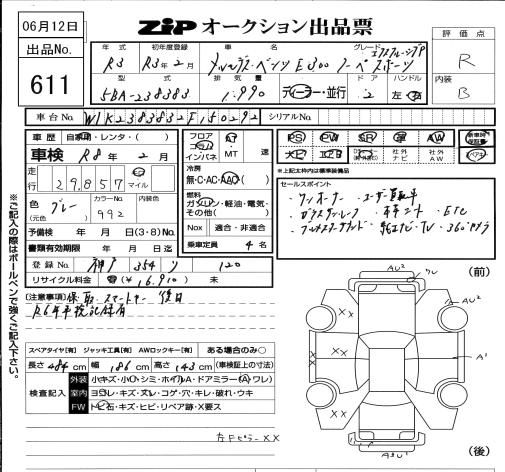 06月12日
ZIP オークション出品票
出品No.
611
評価点
R
内装
B
年式 初年度登録 車名 グレード
R3 R3年2月 メルセデス・ベンツ E300 クーペ スポーツ
型式 排気量 ドア ハンドル
5BA-238383 1,990 ディーラー・並行 2 左・右
車台No. W1K2383832F150292 シリアルNo.
車歴 自家用・レンタ・( )
車検 R8年2月
走行 29,857 km マイル
色 グレー (元色) カラーNo. 992 内装色
予備検 年 月 日(3・8)No.
書類有効期限 年 月 日迄
登録No. 神戸 354 ツ 120
リサイクル料金 有 (¥16,910) 未
フロア コラム インパネ AT MT 速
冷房 無・C・AC・AAC
燃料 ガソリン・軽油・電気・その他( )
Nox 適合・非適合
乗車定員 4名
PS PW SR 革 AW
ナビ 社外 AW
*上記太枠内は装備機能
セールスポイント
・ワンオーナー ・ユーザー買取車
・ガラスサンルーフ ・本革シート ・ETC
・TV ・360°カメラ
[注意事項] 保、取、スマートキー 後日
R6年車検記録有
スペアタイヤ[有] ジャッキ工具[有] AWロックキー[有] ある場合のみ○
長さ 484cm 幅 186cm 高さ 143cm (車検証上の寸法)
検査記入 外装 小キズ・小凹・シミ・ホイールA・ドアミラー(A・ワレ)
室内 ヨゴレ・キズ・スレ・コゲ・穴・キレ・破れ・ウキ
FW トビ石・キズ・ヒビ・リペア跡・X要ス
左Fピラー XX
※ご記入の際はボールペンで強くご記入下さい。
(前)
AU2
A AU2
XX
X
A1
(後)